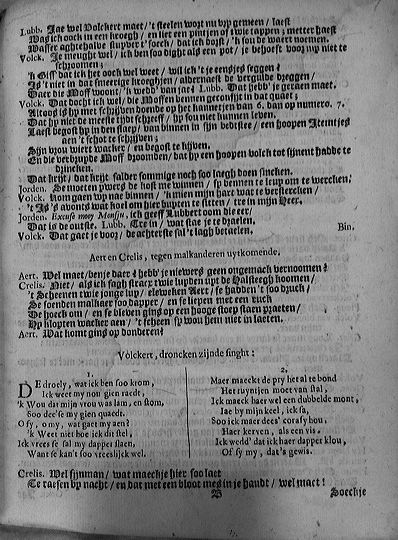 Lubb. Jae wel Volckert maet / 't steelen wort nu vry gemeen / laest
Was ick oock in een kroegh / en liet een pintjen of twie tappen; metter haest
Wasser aghtehalve stuyver t'soeck / dat ick dorst / 'k sou de waert noemen.
Volck. Je meught wel / ick ben soo dight als een pot / je behoeft voor my niet te
schroomen;
'k Giss dat ick het oock wel weet / wil ick 't je eensjes seggen?
Is 't niet in dat smeerige kroeghjen / allernaest de vergulde
Waer die Moff woont / 'k wedd' van jae? Lubb. Dat hebd' je geraen maet.
Volck. Dat docht ick wel / die Moffen bennen geconfijt in dat quaet;
Altoos is hy met schrijven doende op het kannetjen van 6. dan op numero. 7.
Dat hy niet de meeste tijdt schreeff / hy sou niet kunnen leven.
Laest begost hy in den slaep / van binnen in sijn bedstee / een hoopen Iteintjes
aen 't schot te schrijven;
Sijn vrou wiert wacker / en begost te kijven.
En die verbruyde Moff droomden / dat hy een hoopen volck tot sijnent hadde te
drincken.
Dat krijt / dat krijt salder sommige noch soo laegh doen sincken.
Jorden. Se moeten pwers de kost me winnen / sy bennen te leuy om te wercken.
Volck. Kom gaen wy nae binnen / 'k mien mijn hart wat te verstercken /
't Is 's avonts wat koel om hier buyten te sitten / tre in mijn Heer.
Jorden. Excuse moy Monsju, ick geeff Lubbert oom die eer /
Dat is de outste. Lubb. Tre in / wat stae je te draelen.
Volck. Dat gaet je voor / de achterste sal 't lagh betaelen. Bin.
Aert en Crelis, tegen malkanderen uytkomende.
Aert. Wel maet / benje daer? hebd' je niewers geen ongemack vernoomen?
Crelis. Niet / als ick sagh stracx twie luyden uyt de Halsteegh koomen /
't Scheenen twie jonge luy / eleweken Aert / se hadden 't soo druck /
Se soenden malkaer soo dapper / en se liepen met een ruck
De hoeck om / en se bleven gins op een hooge stoep staen praeten /
Hy klopten wacker aen / 't scheen sy wou hem niet in laeten.
Aert. Wat komt gins op donderen?
Volckert, droncken zijnde singht:
1.
DE droely, wat ick ben soo krom,
Ick weet my non gien raedt,
'k Wou dat mijn vrou was lam, en stom,
Soo dee'se my gien quaedt.
O sy, o my, wat gaet my aen?
'k Weet niet hoe ick dit stel,
Ick vrees se sal my dapper slaen,
Want se kan't soo vreeslijck wel.
2.
Maer maeckt de pry het al te bond
Het ruyntjen moet van stal,
Ick maeck haer wel een dubbelde mont,
Iae by mijn keel, ick sa,
Soo ick maer dees' corasy hou,
Haer kerven, als een vis.
Ick wedd' dat ick haer dapper klou,
Of sy my, dat's gewis.
Crelis. Wel sijnman / wat maeckje hier soo laet
Te raesen by nacht / en dat met een bloot mes in je handt / wel maet!
B Soeckje